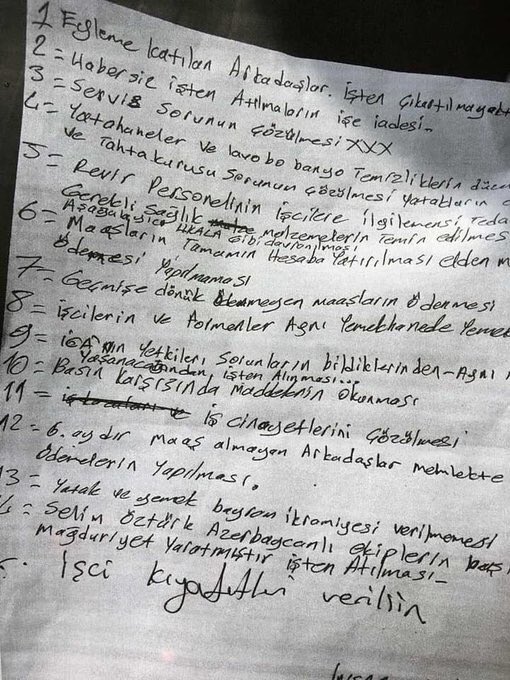 1 Eyleme katılan Arkadaşlar. işten çıkartılmayakt
2 = Habersiz işten Atılmaların işe iadesi.
3 = Servis Sorunun Çözülmesi XXX
4 = Yatahaneler ve lavobo banyo Temizliklerin düze
ve Tahtakurusu Sorunun çözülmesi yatakların
5 = Revir Personelinin işcilere ilgilenmesi Teda
Gerekli Sağlık malzemelerin temin edilmes
Aşağılayıcı gibi davranılması
6 = Maaşların Tamamın Hesaba Yatırılması elden m
Ödemesi Yapılmaması
7 = Geçmişe dönük Ödenmeyen maaşların Ödenmesi
8 = İşcilerin ve Formenler Aynı Yemekhanede Yemek
9 = iGA'nın Yetkileri Sorunların bildiklerinden - Aynı
Yaşanacağından işten Alınması...
10 = Basın karşısında maddelenin Okunması
11 = İş cinayetlerini Çözülmesi
12 = 6. aydır maaş almayan Arkadaşlar memlekte
Ödemelerin Yapılması.
13 = Yatak ve yemek bayram ikramiyesi verilmemesi
4 = Selim Öztürk Azerbaycanlı ekiplerin
mağduriyet yaratmıştır işten Atılması-
İşci kıyafetleri verilsin